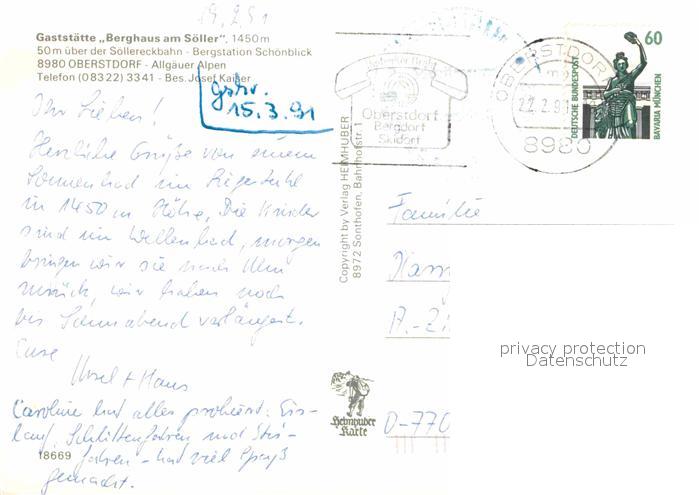 19.2.91
Gaststätte „Berghaus am Söller“, 1450 m
50 m über der Söllereckbahn - Bergstation Schönblick
8980 OBERSTDORF - Allgäuer Alpen
Telefon (08322) 3341 - Bes. Josef Kaiser
gstr.
15.3.91
Ihr Lieben!
Herzliche Grüße von einem
Sonnenbad im Liegestuhl
in 1450 m Höhe. Die Kinder
sind im Wellenbad, morgen
bringen wir sie nach Ulm
zurück, wir haben noch
bis Sonnabend verlängert.
Eure
Ursel + Hans
Caroline hat alles probiert: Eis-
lauf, Schlittenfahren und Ski-
fahren - hat viel Spaß
gemacht.
18669
Copyright by Verlag HEIMHUBER
8972 Sonthofen, Bahnhofstr. 1
Heimhuber
Karte
Oberstdorf
Bergdorf
Skidorf
OBERSTDORF
22.2.91
8980
60
DEUTSCHE BUNDESPOST
BAVARIA MÜNCHEN
Familie
D-770
privacy protection
Datenschutz